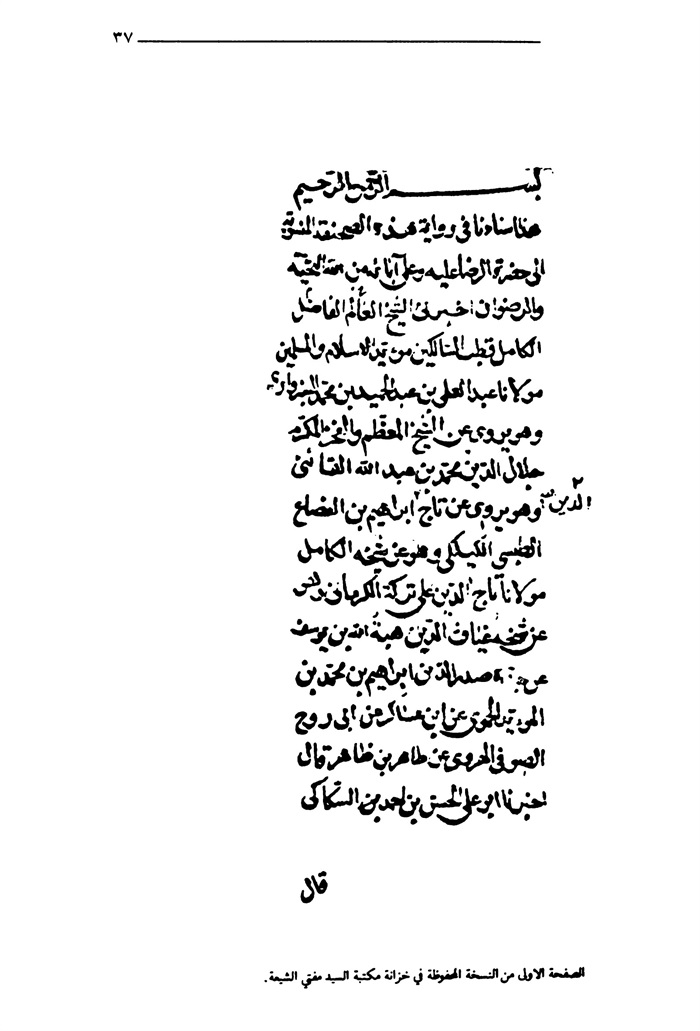 ٣٧
بسم الله الرحمن الرحيم
هذا سنادنا في رواية هذه الصحيفة المنسوبة
الى حضرة الرضا عليه وعلى آبائه من الله التحية
والرضوان اخبرني الشيخ العالم الفاضل
الكامل قطب السالكين مؤيد الاسلام والمسلمين
مولانا عبد العلى بن عبد الحميد بن محمد السبزواري
وهو يروي عن الشيخ المعظم المكرم
جلال الدين محمد بن عبد الله القائنى
وهو يروي عن تاج الدين ابراهيم بن
الطبسى الكيلكى وهو عن شيخه الكامل
مولانا تاج الدين على تركة الكرماني وهو
عن شيخه غياث الدين هبة الله بن يوسف
عن صدر الدين ابراهيم بن محمد بن
المويد الحموى عن ابن عساكر عن ابى روح
الصوفى الهروى عن طاهر بن طاهر قال
اخبرنا ابو على الحسن بن احمد بن السكاكى
قال
الصفحة الاولى من النسخة المحفوظة في خزانة مكتبة السيد مفتي الشيعة.